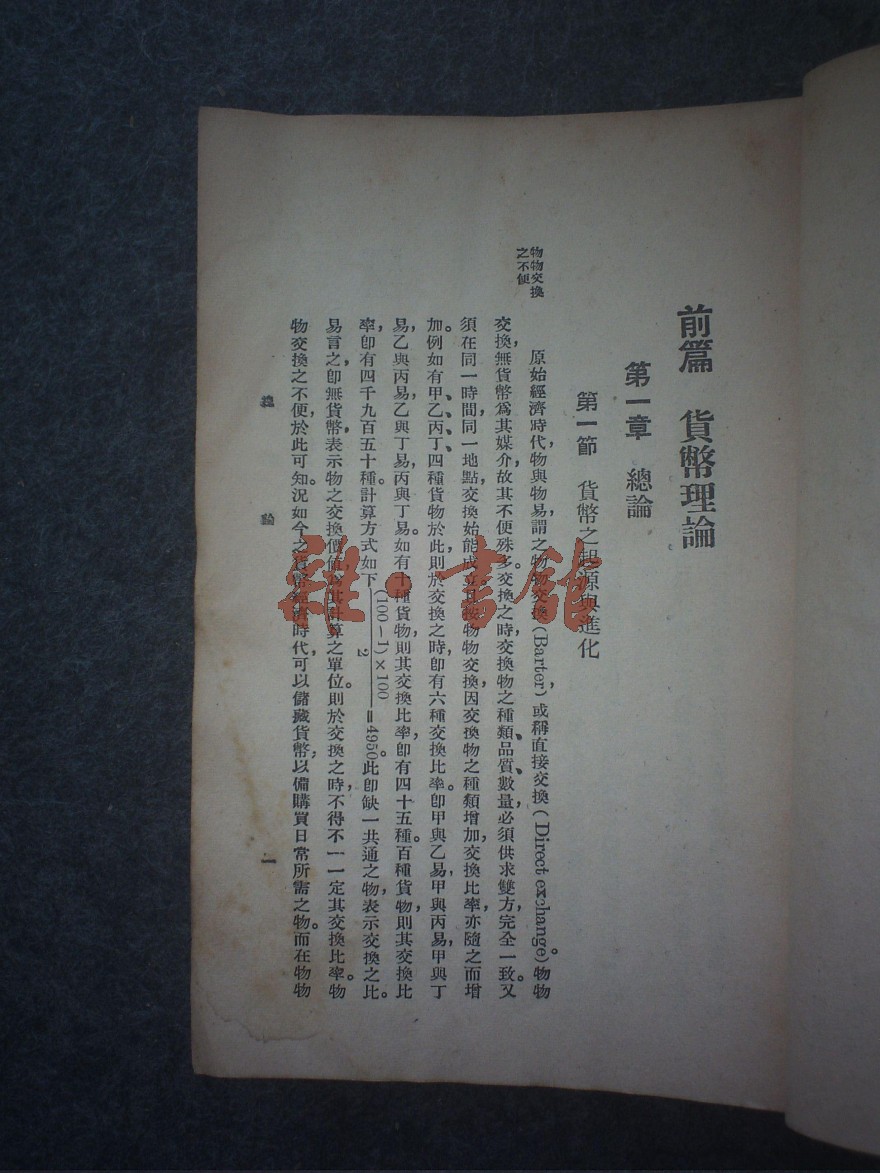 前篇 貨幣理論
第一章 總論
第一節 貨幣之起源與進化
物物交換
之不便
原始經濟時代，物與物易，謂之物物交換(Barter)，或稱直接交換(Direct exchange)。物物
交換，無貨幣爲其媒介，故其不便殊多。交換之時，交換物之種類、品質、數量，必須供求雙方，完全一致。又
須在同一時間，同一地點，交換始能成立。且按物物交換，因交換物之種類增加，交換比率，亦隨之而增
加。例如有甲、乙、丙、丁四種貨物於此，則於交換之時，卽有六種交換比率。卽甲與乙易，甲與丙易，甲與丁
易，乙與丙易，乙與丁易，丙與丁易。如有十種貨物，則其交換比率，卽有四十五種。百種貨物，則其交換比
率，卽有四千九百五十種。計算方式如下 (100－1)×100/2＝4950。此卽缺一共通之物，表示交換之比。
易言之，卽無貨幣，表示物之交換價值，爲其計算之單位。則於交換之時，不得不一一定其交換比率。物
物交換之不便，於此可知。況如今之貨幣經濟時代，可以儲藏貨幣，以備購買日常所需之物。而在物物
總 論
一
雜·書館